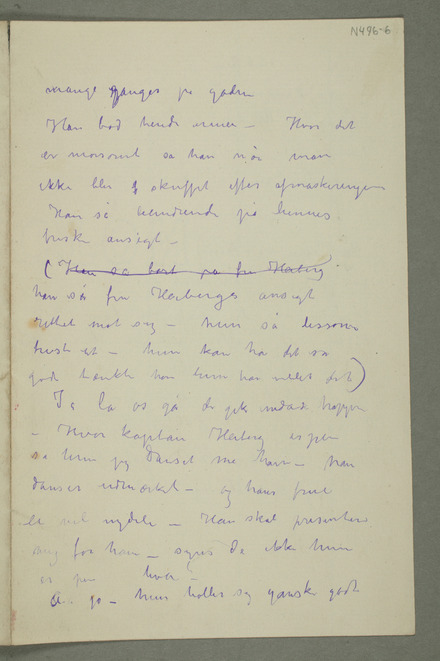 N496-6
mange ganger på gaden
Han bød hende armen – Hvor det
er morsomt sa han når man
ikke blir skuffet efter afmaskeringen
Han så beundrende på hennes
friske ansigt –
(Han så bort på fru Heiberg
han så fru Heibergs ansigt
rettet mot sig – hun så
trist ut – hun kan ha det så
godt tænkte han hun har villet det)
Ja la os gå de gik
– Hvor kaptein Heiberg er pen
sa hun jeg danset med ham – han
danser udmærket – og hans frue
er nydelig – Han skal presentere
mig for ham – synes De ikke hun
er pen hvor?
Å – jo – hun holder sig ganske godt